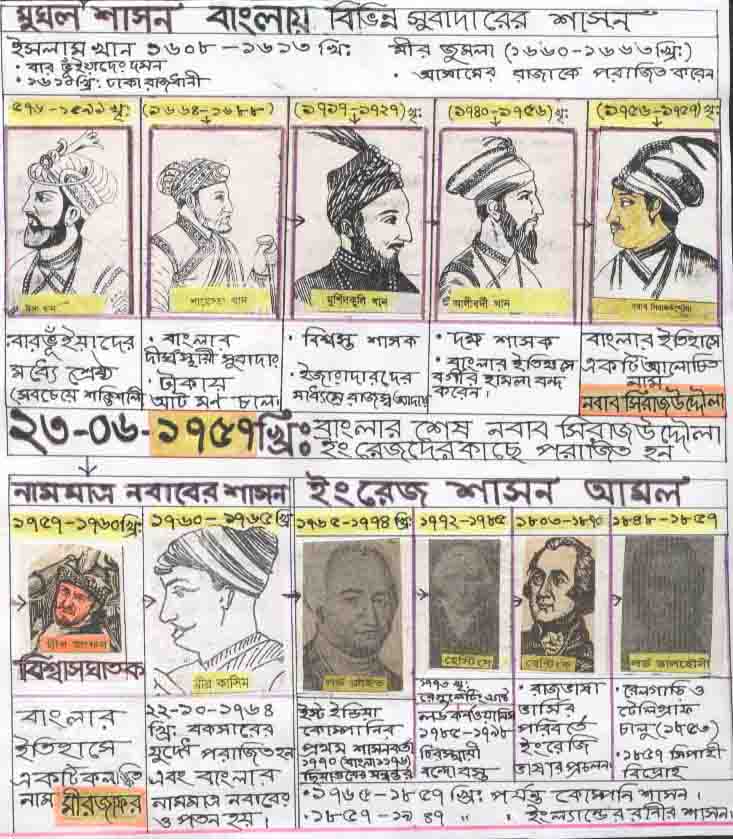 মুঘল শাসন বাংলায় বিভিন্ন সুবাদারের শাসন
ইসলাম খান ১৬০৮-১৬১৩ খ্রি:
• বার ভূঁইয়াদের দমন
• ১৬১০ খ্রি: ঢাকা রাজধানী
মীর জুমলা (১৬৬০-১৬৬৩খ্রি:)
• আসামের রাজাকে পরাজিত করেন
৫৭৬-১৫৯৯ খৃ:
ঈসা খান
বারভূঁইয়াদের
মধ্যে শ্রেষ্ঠ
(সবচেয়ে শক্তিশালী
(১৬৬৪-১৬৮৮) খৃ:
শায়েস্তা খান
• বাংলার
দীর্ঘস্থায়ী সুবাদার
• টাকায়
আট মণ চাল।
(১৭১৭-১৭২৭) খৃ:
মুর্শিদকুলি খান
• বিশ্বস্ত শাসক
• ইজারাদারদের
মাধ্যমে রাজস্ব আদায়
(১৭৪০-১৭৫৬) খৃ:
আলীবর্দী খান
• দক্ষ শাসক
• বাংলার ইতিহাসে
বর্গীর হামলা বন্দ
করেন।
(১৭৫৬-১৭৫৭) খৃ:
নবাব সিরাজউদ্দৌলা
বাংলার ইতিহাসে
একটি আলোচিত
নাম
নবাব সিরাজউদ্দৌলা
২৩-০৬-১৭৫৭খ্রি: বাংলার শেষ নবাব সিরাজউদ্দৌলা
ইংরেজদের কাছে পরাজিত হন
নামমাত্র নবাবের শাসন
ইংরেজ শাসন আমল
১৭৫৭-১৭৬০খ্রি:
মীর জাফর
বিশ্বাসঘাতক
বাংলার
ইতিহাসে
একটি কলঙ্কিত
নাম মীরজাফর
১৭৬০-১৭৬৫ খৃ
মীর কাসিম
২২-১০-১৭৬৪
খ্রি: বকসারের
যুদ্ধে পরাজিত হন
এবং বাংলার
নামমাত্র নবাবের
ও পতন হয়।
১৭৬৫-১৭৭৪ খ্রি:
লর্ড ক্লাইভ
ইস্ট ইন্ডিয়া
কোম্পানির
প্রথম শাসনকর্তা
১৭৭০ (বাংলা ১১৭৬)
ছিয়াত্তরের মন্বন্তর
১৭৭২-১৭৮৫
হেস্টিংস
১৭৭৩ খৃ:
রেগুলেটিং এ্যাক্ট
লর্ড কর্নওয়ালিস
১৭৮৫-১৭৯৮
চিরস্থায়ী
বন্দোবস্ত
বেন্টিংক
• রাজভাষা
ফার্সির
পরিবর্তে
ইংরেজি
ভাষার প্রচলন
১৮৪৮-১৮৫৭
লর্ড ডালহৌসী
• রেলগাড়ি ও
টেলিগ্রাফ
চালু (১৮৫৩)
• ১৮৫৭ সিপাহী
বিদ্রোহ
• ১৭৬৫-১৮৫৭ খ্রি: পর্যন্ত কোম্পানি শাসন।
• ১৮৫৭-১৯৪৭ " " ইংল্যান্ডের রানীর শাসন।